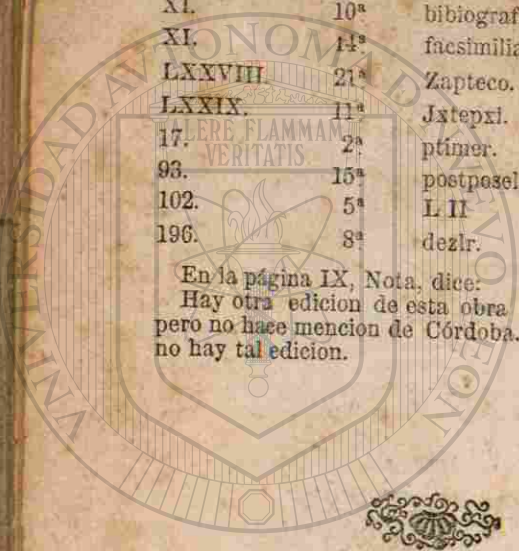 XI. 10ª bibiograf
XI. 14ª facsimilia
LXXVIII. 21ª Zapteco.
LXXIX. 11ª Jxtepxi.
17. 2ª ptimer.
93. 15ª postposel
102. 5ª L II
196. 8ª dezlr.
En la página IX, Nota, dice:
Hay otra edicion de esta obra
pero no hace mencion de Córdoba.
no hay tal edicion.
UNIVERSIDAD AUTONOMA DE NUEVO LEON
ALERE FLAMMAM
VERITATIS